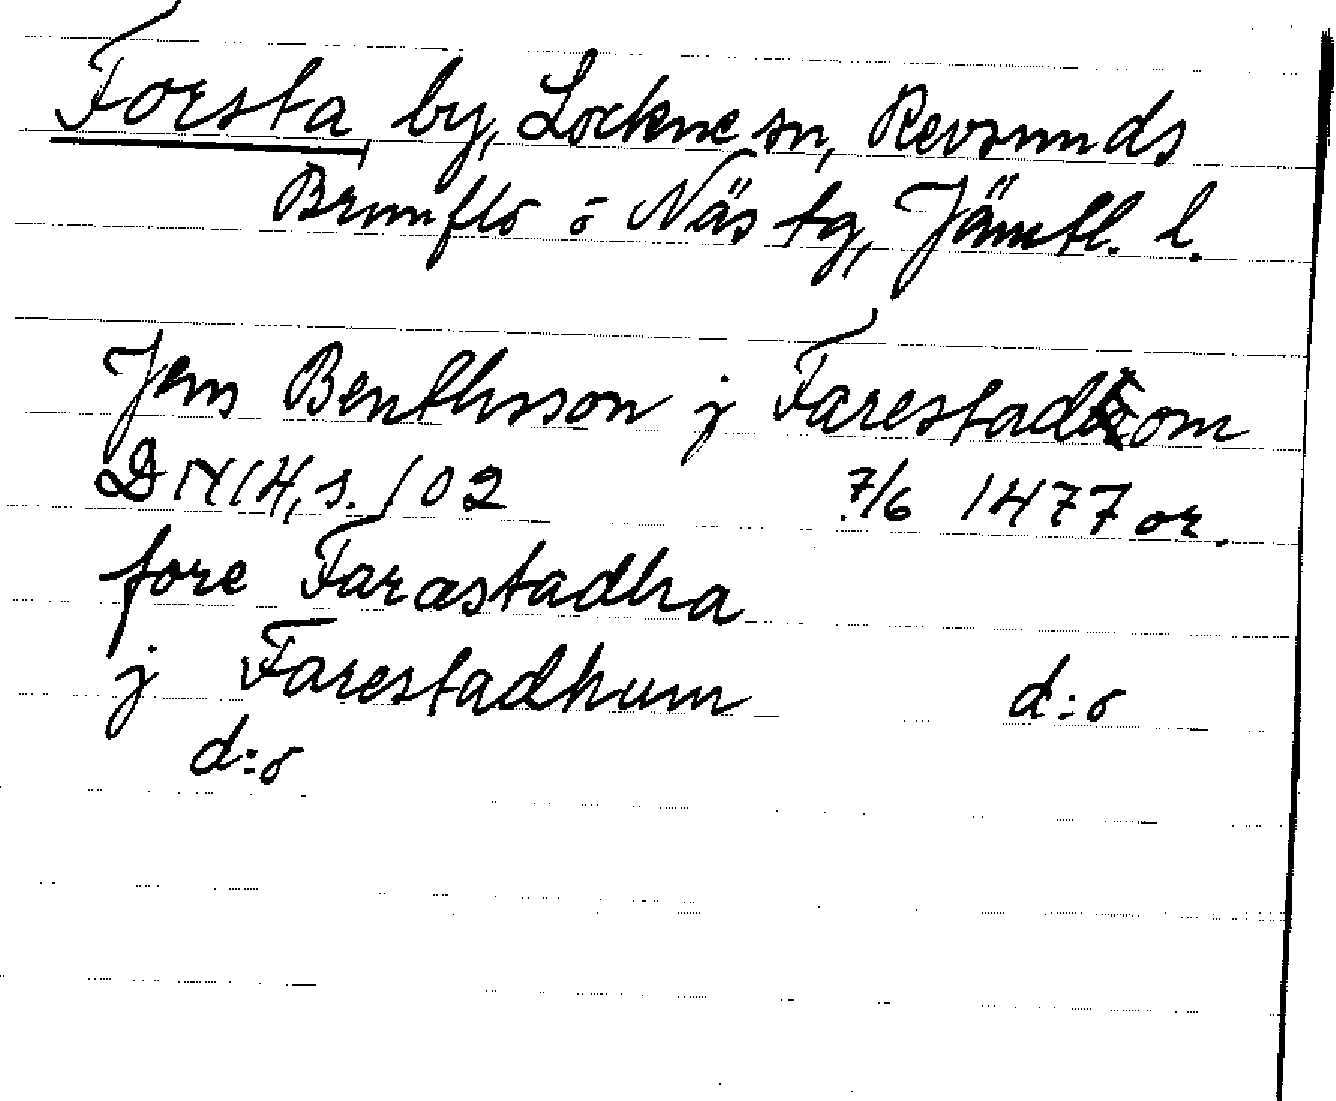 Forsta by, Lockne sn, Revsunds
Brunflo o Näs tg, Jämtl. l.
Jens Benthsson j Farestadhom
DN 14, s. 102 7/6 1477 or.
fore Farastadha
j Farestadhum d:o
d:o